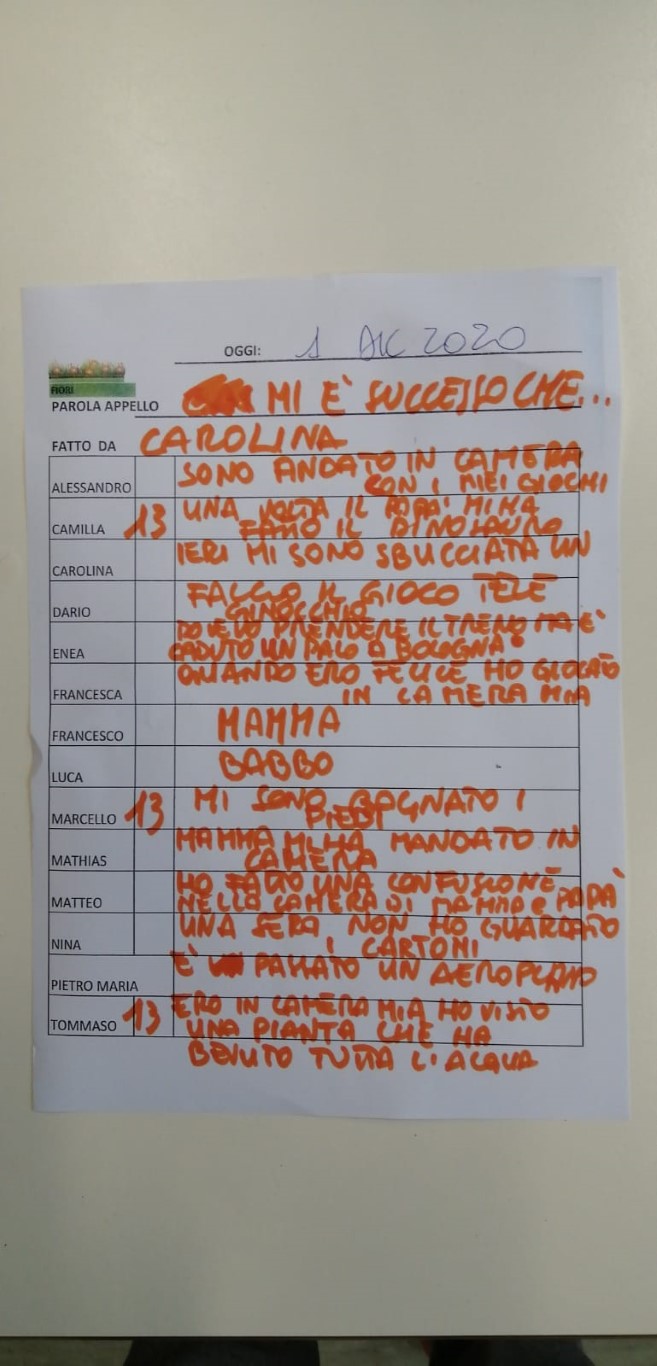 OGGI: 1 DIC 2020
FIORI
PAROLA APPELLO MI È SUCCESSO CHE...
FATTO DA CAROLINA
ALESSANDRO SONO ANDATO IN CAMERA
CON I MIEI GIOCHI
CAMILLA 13 UNA VOLTA IL PAPA' MI HA
FATTO IL DINOSAURO
CAROLINA IERI MI SONO SBUCCIATA UN
GINOCCHIO
DARIO FACCIO IL GIOCO TELE
ENEA DOVEVO PRENDERE IL TRENO MA È
CADUTO UN PALO A BOLOGNA
FRANCESCA QUANDO ERO FELICE HO GIOCATO
IN CAMERA MIA
FRANCESCO MAMMA
LUCA BABBO
MARCELLO 13 MI SONO BAGNATO I
PIEDI
MATHIAS MAMMA MI HA MANDATO IN
CAMERA
MATTEO HO FATTO UNA CONFUSIONE
NELLA CAMERA DI MAMMA E PAPÀ
NINA UNA SERA NON HO GUARDATO
I CARTONI
PIETRO MARIA È PASSATO UN AEROPLANO
TOMMASO 13 ERO IN CAMERA MIA HO VISTO
UNA PIANTA CHE HA
BEVUTO TUTTA L'ACQUA